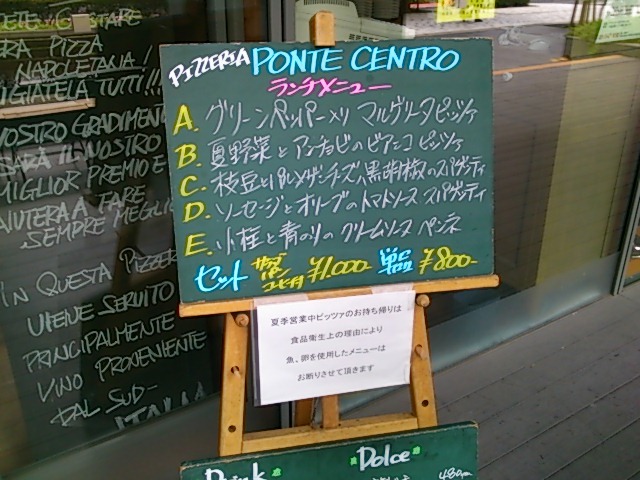 PIZZERIA PONTE CENTRO
ランチメニュー
A. グリーンペッパー入り マルゲリータピッツァ
B. 夏野菜とアンチョビのビアンコ ピッツァ
C. 枝豆とパルメザンチーズ、黒胡椒のスパゲッティ
D. ソーセージとオリーブのトマトソース スパゲッティ
E. 小柱と青のりのクリームソース ペンネ
セット サラダ パン コーヒー付 ¥1,000- 単品 ¥800-
夏季営業中ピッツァのお持ち帰りは
食品衛生上の理由により
魚、卵を使用したメニューは
お断りさせて頂きます
Drink
Dolce
480
PIZZA
NAPOLETANA!
TUTTI!!
NOSTRO GRADIMENTO
SARÀ IL VOSTRO
MIGLIOR PREMIO E
AIUTERÀ A FARE
SEMPRE MEGLIO
IN QUESTA PIZZERIA
VIENE SERVITO
PRINCIPALMENTE
VINO PROVENIENTE
DAL SUD-
ITALIA